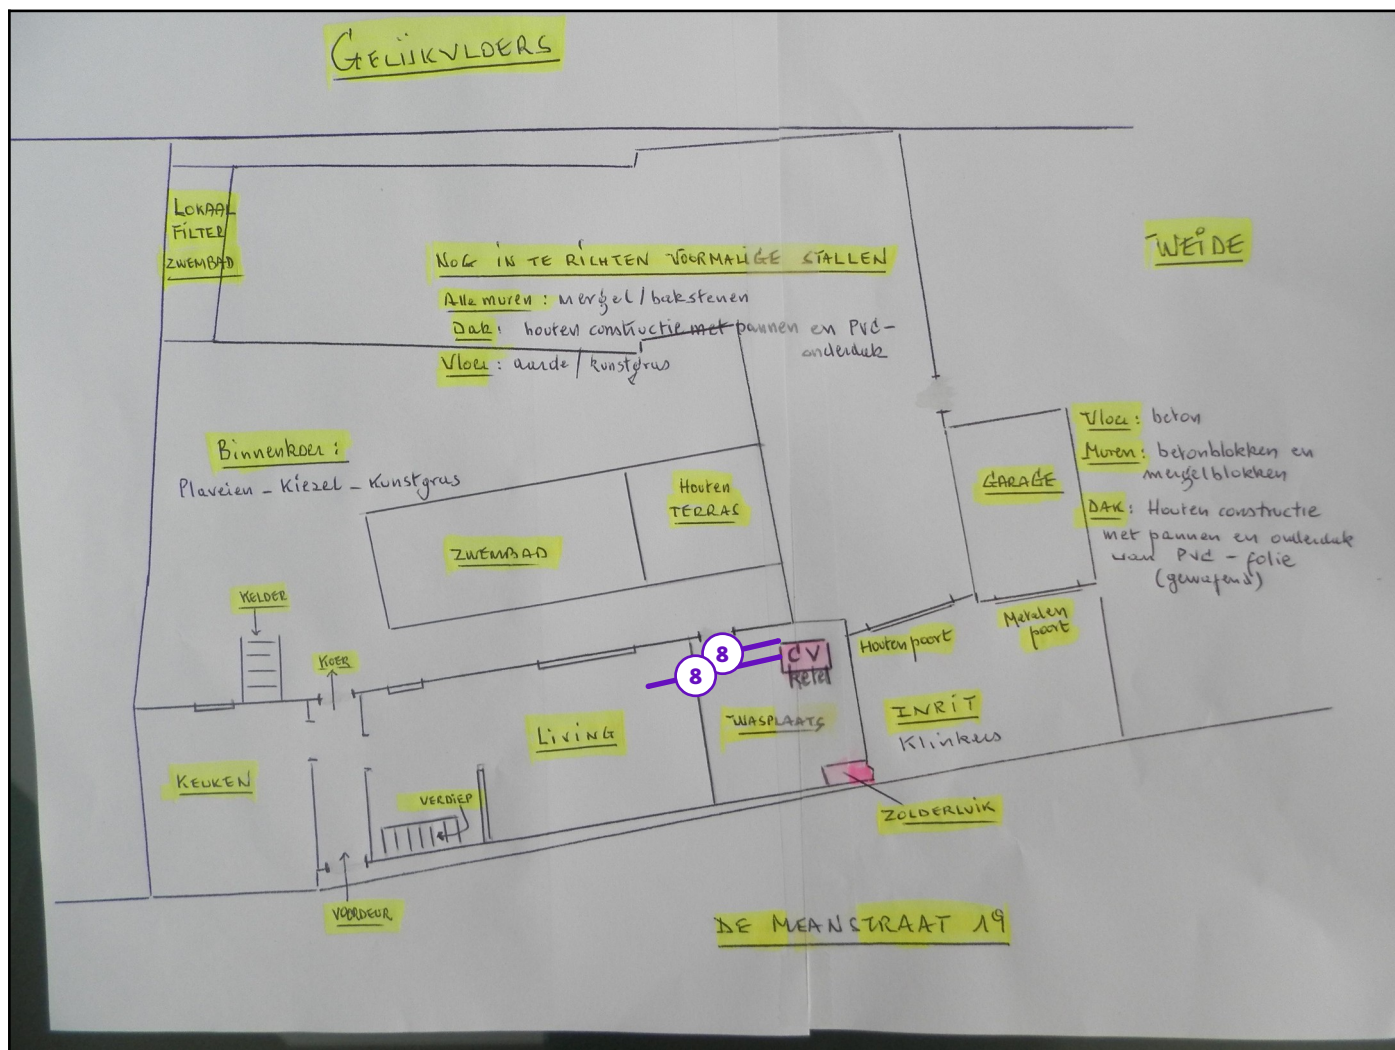 GELIJKVLOERS
LOKAAL
FILTER
ZWEMBAD
NOG IN TE RICHTEN VOORMALIGE STALLEN
Alle muren : mergel/bakstenen
Dak : houten constructie met pannen en PVC-
onderdak
Vloer : aarde/kunstgras
WEIDE
Binnenkoer :
Plaveien - Kiezel - Kunstgras
Houten
TERRAS
ZWEMBAD
Vloer : beton
Muren : betonblokken en
mergelblokken
GARAGE
DAK : Houten constructie
met pannen en onderdak
van PVC - folie
(gewapend)
KELDER
KOER
Houten poort
Metalen
poort
8
8
CV
ketel
LIVING
WASPLAATS
INRIT
Klinkers
KEUKEN
VERDIEP
ZOLDERLUIK
VOORDEUR
DE MEANSTRAAT 19